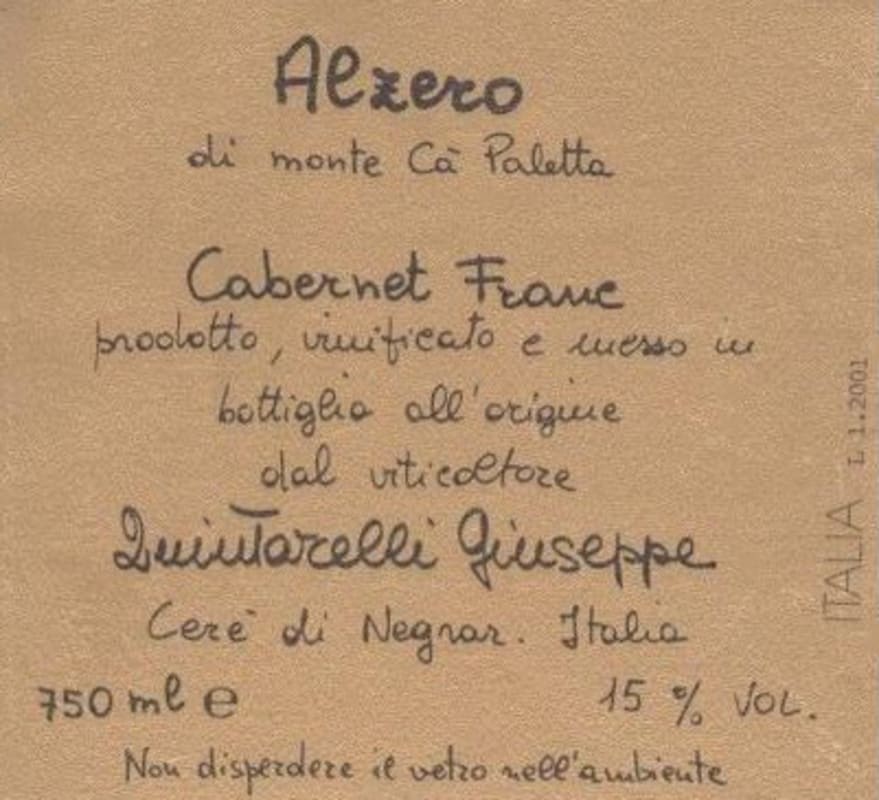 Alzero
di monte Cà Paletta
Cabernet Franc
prodotto, vinificato e messo in
bottiglia all'origine
dal viticoltore
Quintarelli Giuseppe
Cerè di Negrar. Italia
750 ml e
15 % VOL.
Non disperdere il vetro nell'ambiente
ITALIA L 1.2001